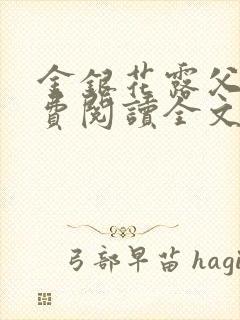 金銀花露父
費閱讀全文
弓部早苗 hagi